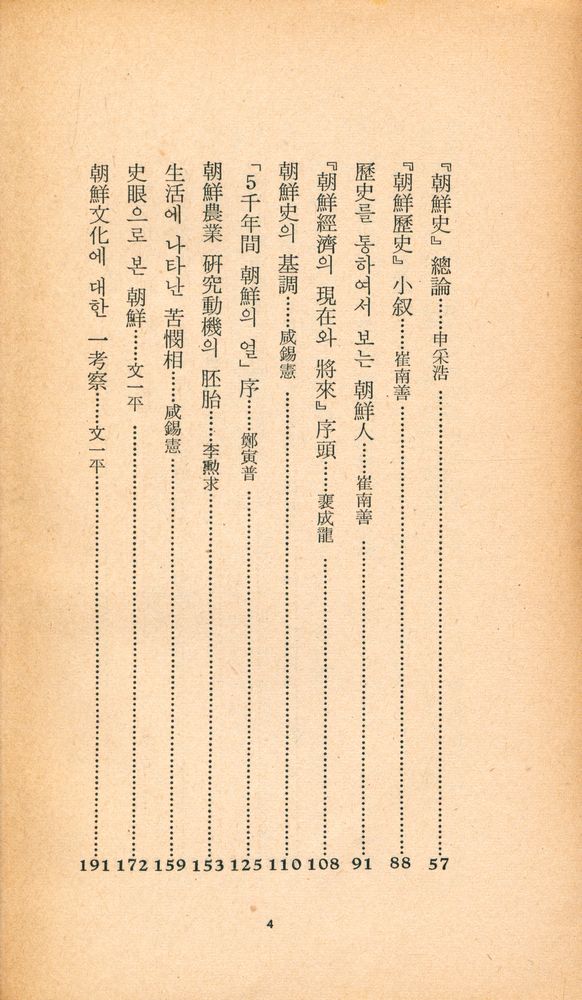 『朝鮮史』 總論……申采浩……57
『朝鮮歷史』 小叙……崔南善……88
歷史를 통하여서 보는 朝鮮人……崔南善……91
『朝鮮經濟의 現在와 將來』 序頭……裵成龍……108
朝鮮史의 基調……咸錫憲……110
「5千年間 朝鮮의 얼」 序……鄭寅普……125
朝鮮農業 硏究動機의 胚胎……李勲求……153
生活에 나타난 苦憫相……咸錫憲……159
史眼으로 본 朝鮮……文一平……172
朝鮮文化에 대한 一考察……文一平……191
4